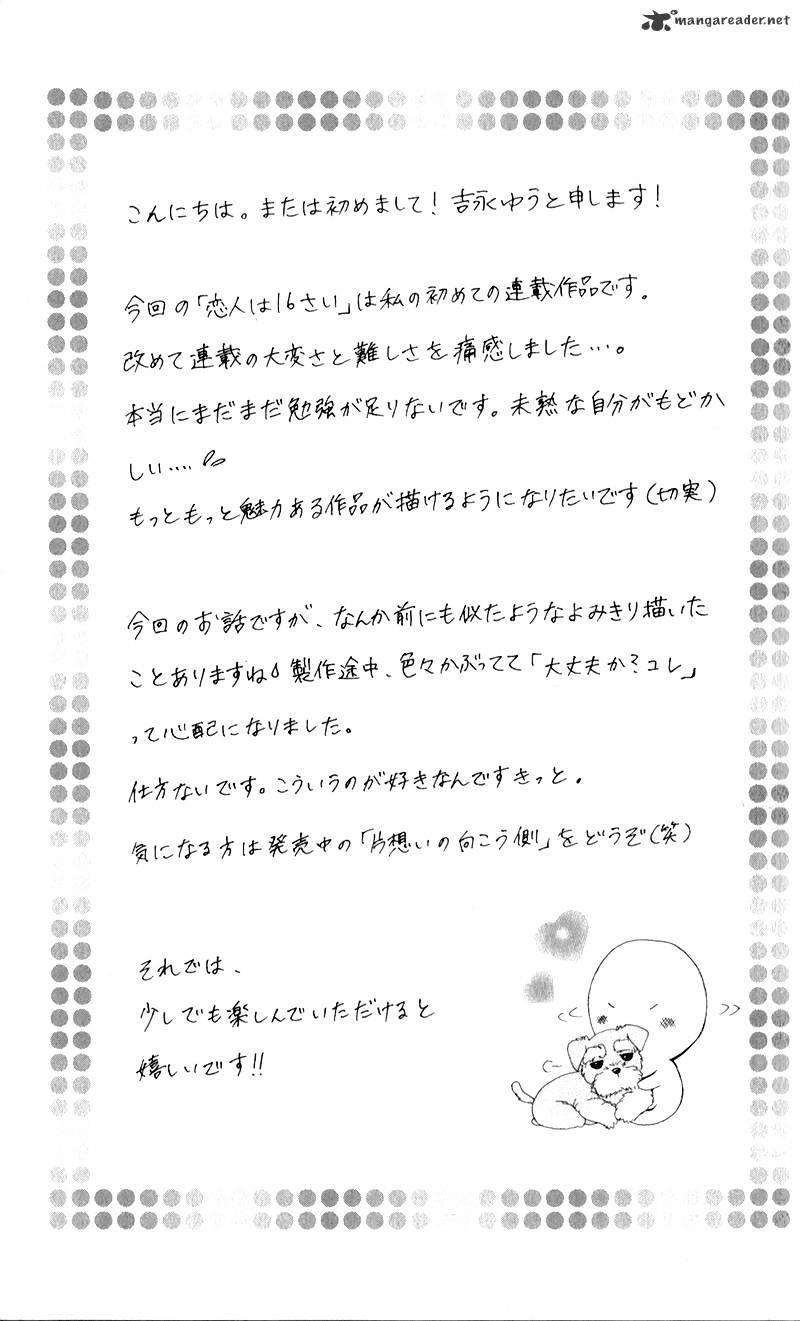 mangareader.net
こんにちは。または初めまして！吉永ゆうと申します！
今回の「恋人は16さい」は私の初めての連載作品です。
改めて連載の大変さと難しさを痛感しました…。
本当にまだまだ勉強が足りないです。未熟な自分がもどか
しい….
もっともっと魅力ある作品が描けるようになりたいです(切実)
今回のお話ですが、なんか前にも似たようなよみきり描いた
ことありますね 製作途中、色々かぶってて「大丈夫か？コレ」
って心配になりました。
仕方ないです。こういうのが好きなんですきっと。
気になる方は発売中の「片想いの向こう側」をどうぞ(笑)
それでは、
少しでも楽しんでいただけると
嬉しいです!!